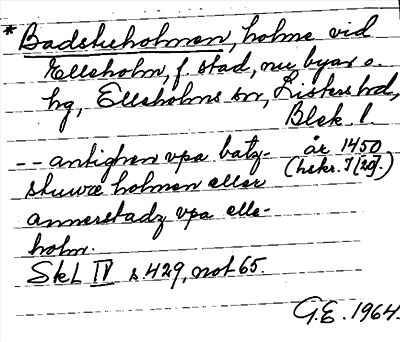 * Badstuholmen, holme vid
Elleholm, f. stad, nu byar o.
hg, Elleholms sn, Listers hd,
Blek. l
-- antighen vpa batz- år 1450
stuwæ holmen eller (hskr. I [20].)
annerstadz vpa elle-
holm.
SkL IV s 429, not 65.
G.E. 1964.